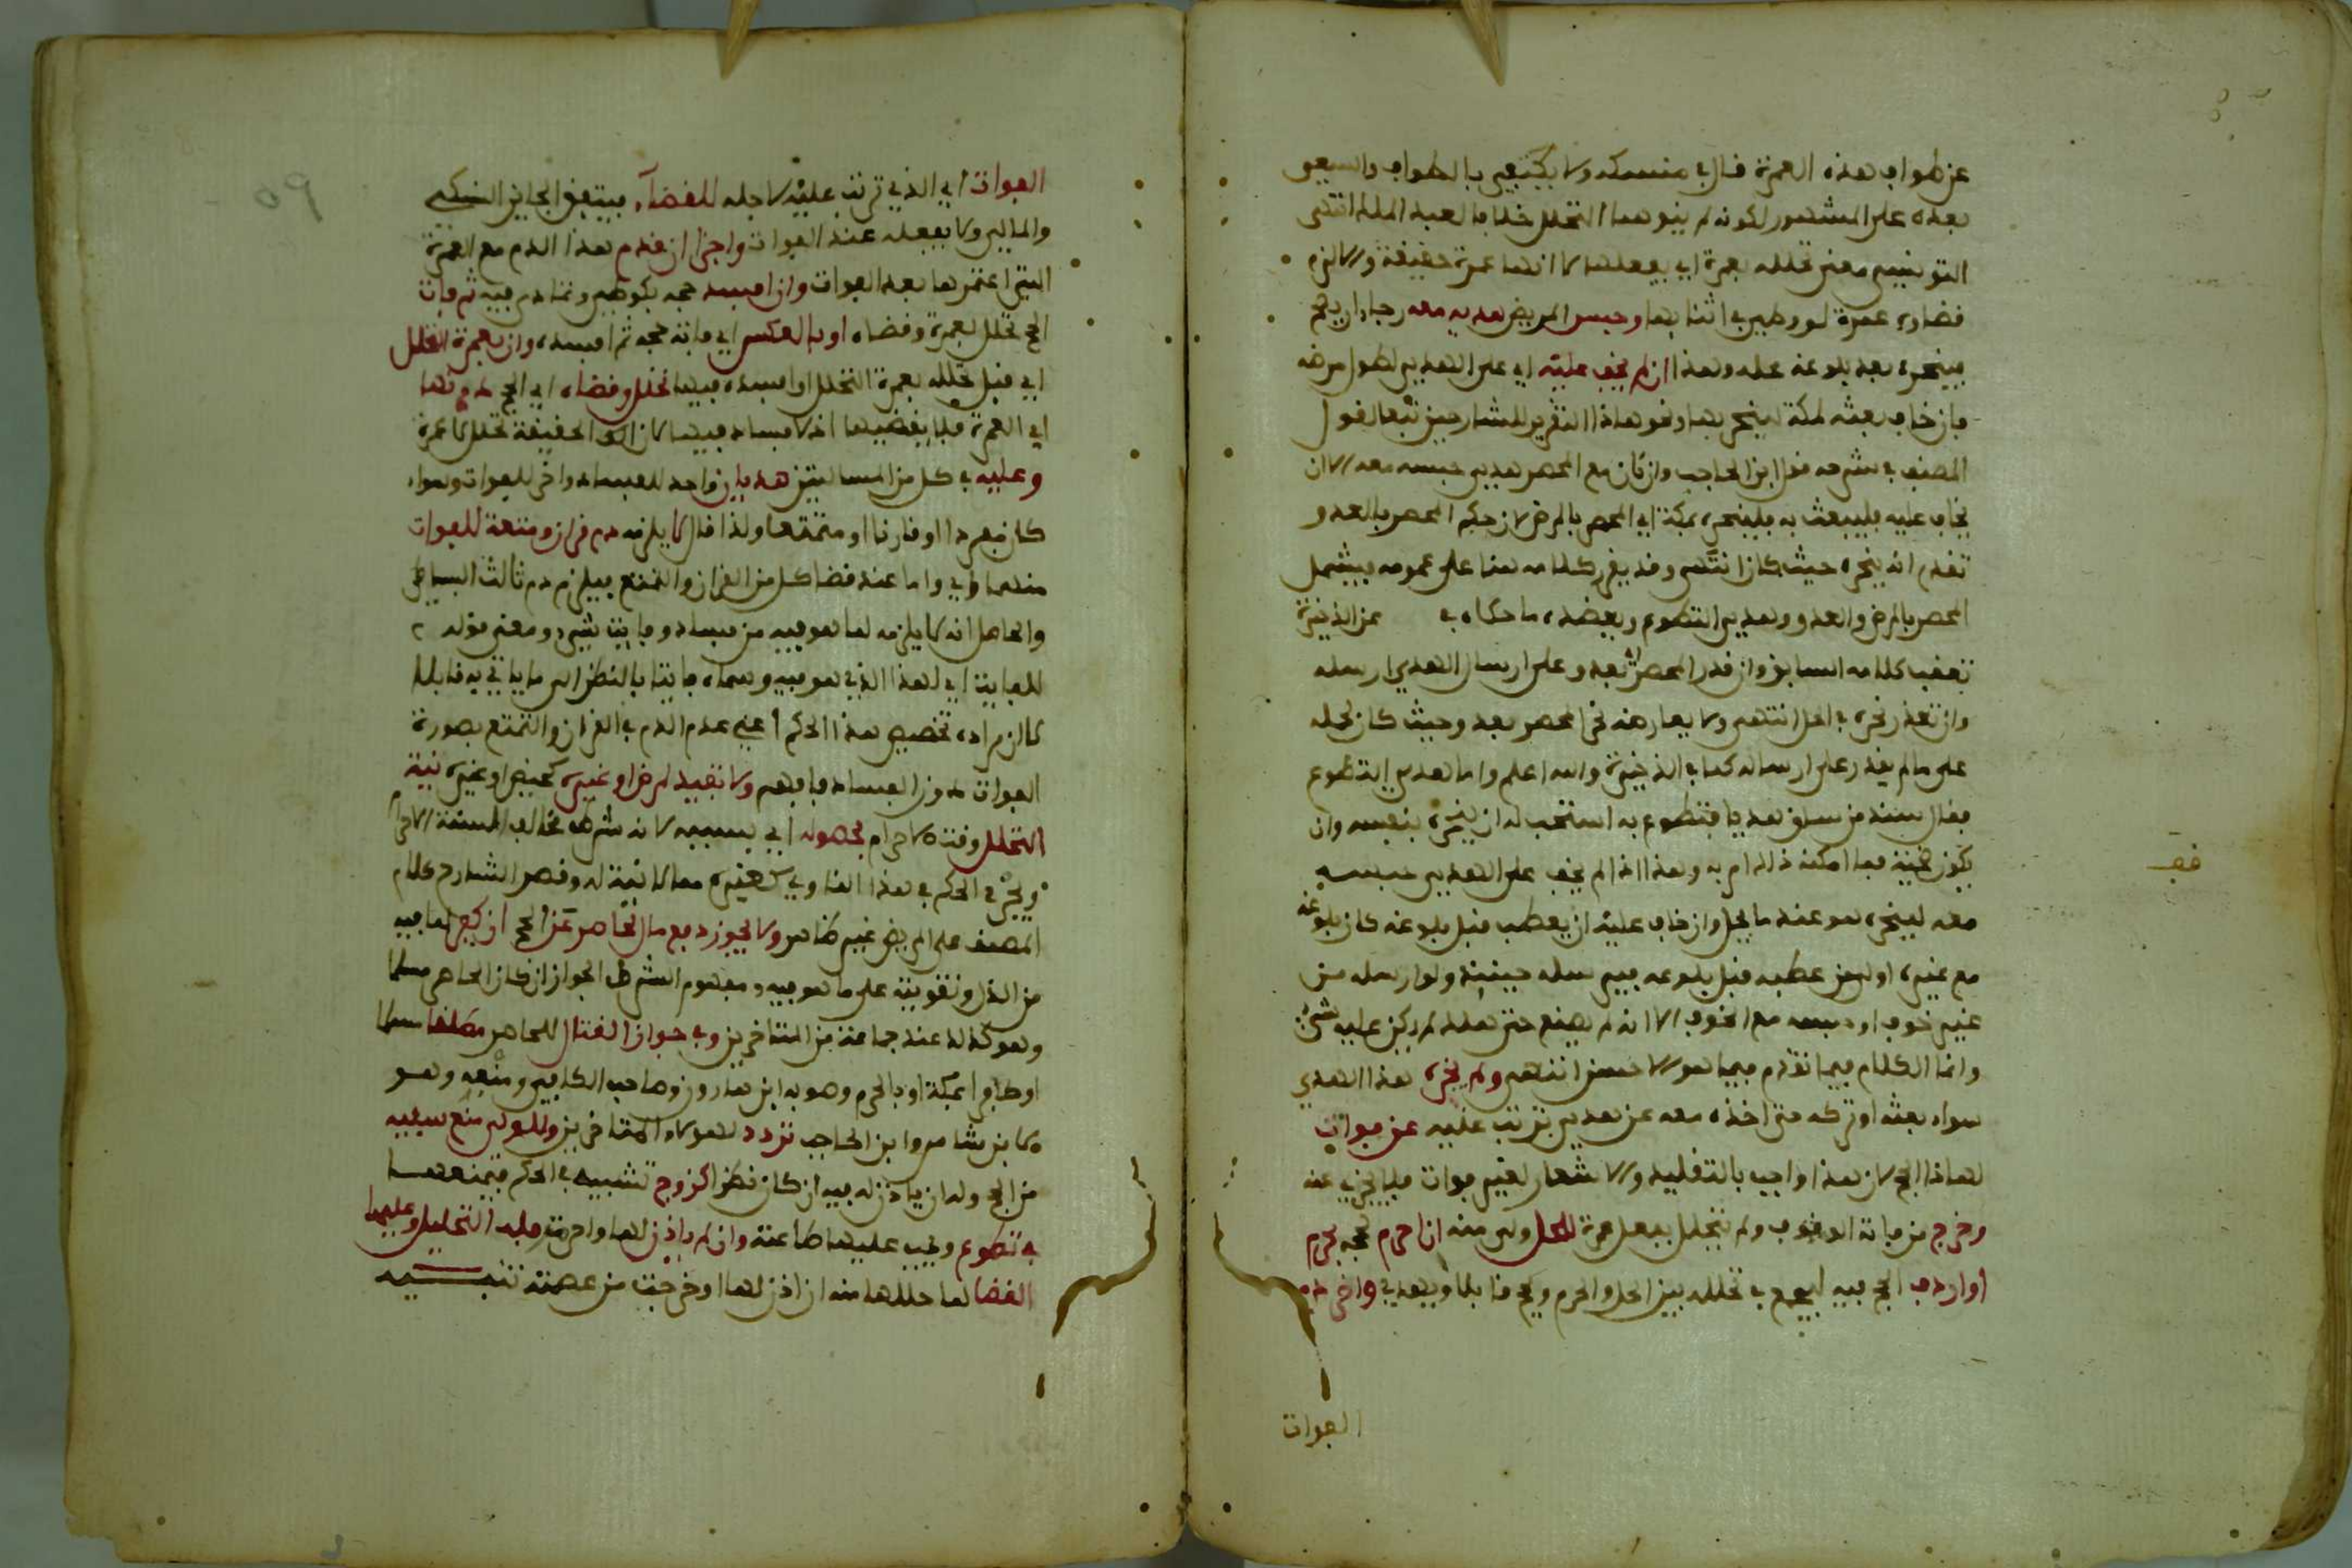 عن طواف هذه العمرة قال في منسكه ولا يكتفي بالطواف والسعي
بعده على المشهور لكونه لم ينو بهما التحلل خلافا لعبد الملك انتهى
التوضيح معنى تحلله بعمرة اي يفعلها لا انها عمرة حقيقة والا لزم
قضاء عمرة لو وطئ في اثنائها وحبس المريض هديه معه رجاء ان يصح
فينحره بعد بلوغه محله وهذا ان لم يخف عليه اي على الهدي لطول مرضه
فان خاف بعثه لمكة لينحر بها وهو هذا التقرير للشارحين تبعا لقول
المصنف في شرحه قول ابن الحاجب وان كان مع المحصر هدي حبسه معه الا ان
يخاف عليه فليبعث به فلينحر بمكة اي المحصر بالمرض لان حكم المحصر بالعدو
تقدم انه ينحره حيث كان انتهى وقد يقرر كلامه هنا على عمومه فيشمل
المحصر بالمرض والعدو وهدي التطوع ويعضده ما حكاه في عن الذخيرة
تعقب كلامه السابق وان قدر المحصر بعدو على ارسال الهدي ارسله
وان تعذر نحره في الحل انتهى ولا يعارضه نحر المحصر بعدو حيث كان لحمله
على ما لم يقدر على ارساله كما في الذخيرة والله اعلم واما هدي التطوع
فقال سند من ساق هديا فتطوع به استحب له ان ينحره بنفسه وان
يكون صحبته فما امكنه ذلك امر به وهذا اذا لم يخف على الهدي حبسه
معه لينحره هو عند ما يحل وان خاف عليه ان يعطب قبل بلوغه كان بلوغه
مع غيره اولى من عطبه قبل بلوغه فيرسله حينئذ ولو ارسله من
غير خوف او حبسه مع الخوف الا انه لم يضع حتى هلك لم يكن عليه شيء
وانما الكلام فيما تقدم فيما هو الاحسن انتهى ولم يجزه هذا الهدي
سواء بعثه او تركه حتى اخذه معه عن هدي ترتب عليه عن فوات
لهذا الحج لان هذا واجب بالتقليد والاشعار لغير فوات فلا يجزي عنه
وخرج من فاته الوقوف ولم يتحلل بفعل عمرة للحل ولبى منه ان احرم بحجه بحرم
او اردف الحج فيه ليجمع في تحلله بين الحل والحرم ويحج قابلا ويهدي واخر دم
الفوات
فف
الفوات اي الذي ترتب عليه لاجله للقضاء فيتفق الجابر النسكي
والمالي ولا يفعله عند الفوات واجزا ان قدم هذا الدم مع العمرة
التي اعتمرها بعد الفوات وان افسد حجه بكوطئ وتمادى فيه ثم فات
الحج تحلل بعمرة وقضاه او بالعكس اي فاته حجه ثم افسده وان بعمرة التحلل
اي قبل تحلله بعمرة التحلل او افسده فيها تحلل وقضاه اي الحج دونها
اي العمرة فلا يقضيها اذ لا فساد فيها لانها في الحقيقة تحلل لا عمرة
وعليه في كل من المسالتين هديان واحد للفساد واخر للفوات وسواء
كان مفردا او قارنا او متمتعا ولذا قال لا يلزمه دم قران ومتعة للفوات
منهما واما عند قضا كل من القران والتمتع فيلزم دم ثالث البساطي
والحاصل انه لا يلزمه لما هو فيه من فساد وفايت شيء ومعنى قوله
للفايت اي لهذا الذي هو فيه وسماه فايتا بالنظر الى ما ياتي به قابلا
لا ان مراده تخصيص هذا الحكم اعني عدم الدم في القران والتمتع بصورة
الفوات دون الفساد فافهم ولا تفيد لمرض او غيره كحيض او غيره نية
التحلل وقت الاحرام بحصوله اي بسببه لانه شرط مخالف للسنة الاحرام
ويجري الحكم في هذا الناوي كغيره مما لا نية له وقصر الشارح كلام
المصنف على المريض غير ظاهر ولا يجوز دفع مال لحاصر عن الحج ان كفر لما فيه
من الذل وتقويته على ما هو فيه ومفهوم الشرط الجواز ان كان الحاصر مسلما
وهو كذلك عند جماعة من المتاخرين وفي جواز القتال للحاصر مطلقا مسلما
او كافرا بمكة او بالحرم وصوبه ابن هارون وصاحب الكافي ومنعه وهو
لابن شاس وابن الحاجب تردد لهولاء المتاخرين وللولي منع سفيه
من الحج وله ان ياذن له فيه ان كان نظرا كزوج تشبيه في الحكم فيمنعها
في تطوع ويجب عليها طاعته وان لم ياذن لها واحرمت فله التحليل وعليها
القضا لما حللها منه ان اذن لها او خرجت من عصمته تنبيه